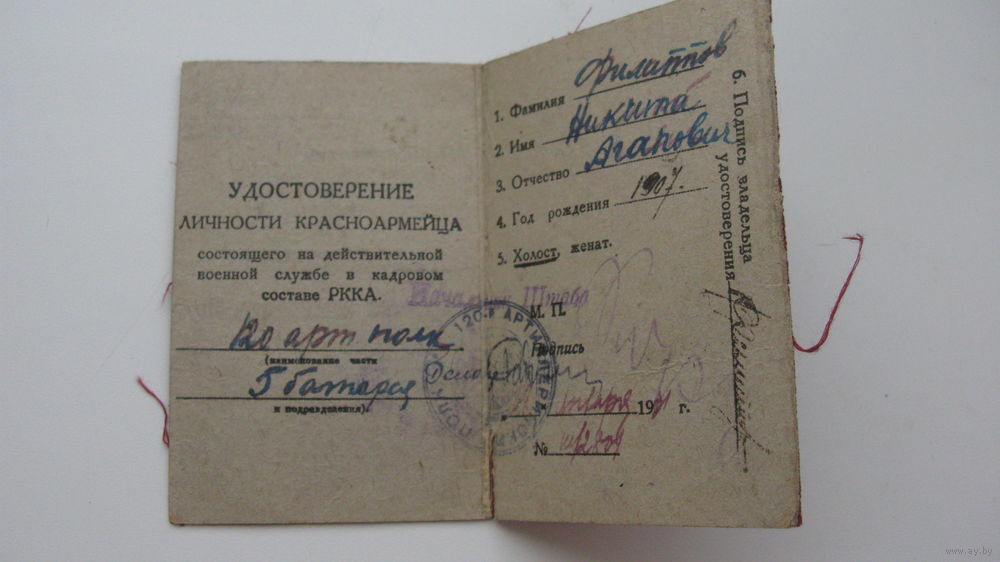 УДОСТОВЕРЕНИЕ
ЛИЧНОСТИ КРАСНОАРМЕЙЦА
состоящего на действительной
военной службе в кадровом
составе РККА.
120 арт полк
(наименование части
5 батарея
и подразделения)
1. Фамилия Филиппов
2. Имя Никита
3. Отчество Агапович
4. Год рождения 1907.
5. Холост, женат.
Начальник Штаба
М. П.
Подпись
января 1931 г.
№
6. Подпись владельца
удостоверения
120-й АРТИЛЛЕРИ
ПОЛК
www.ay.by